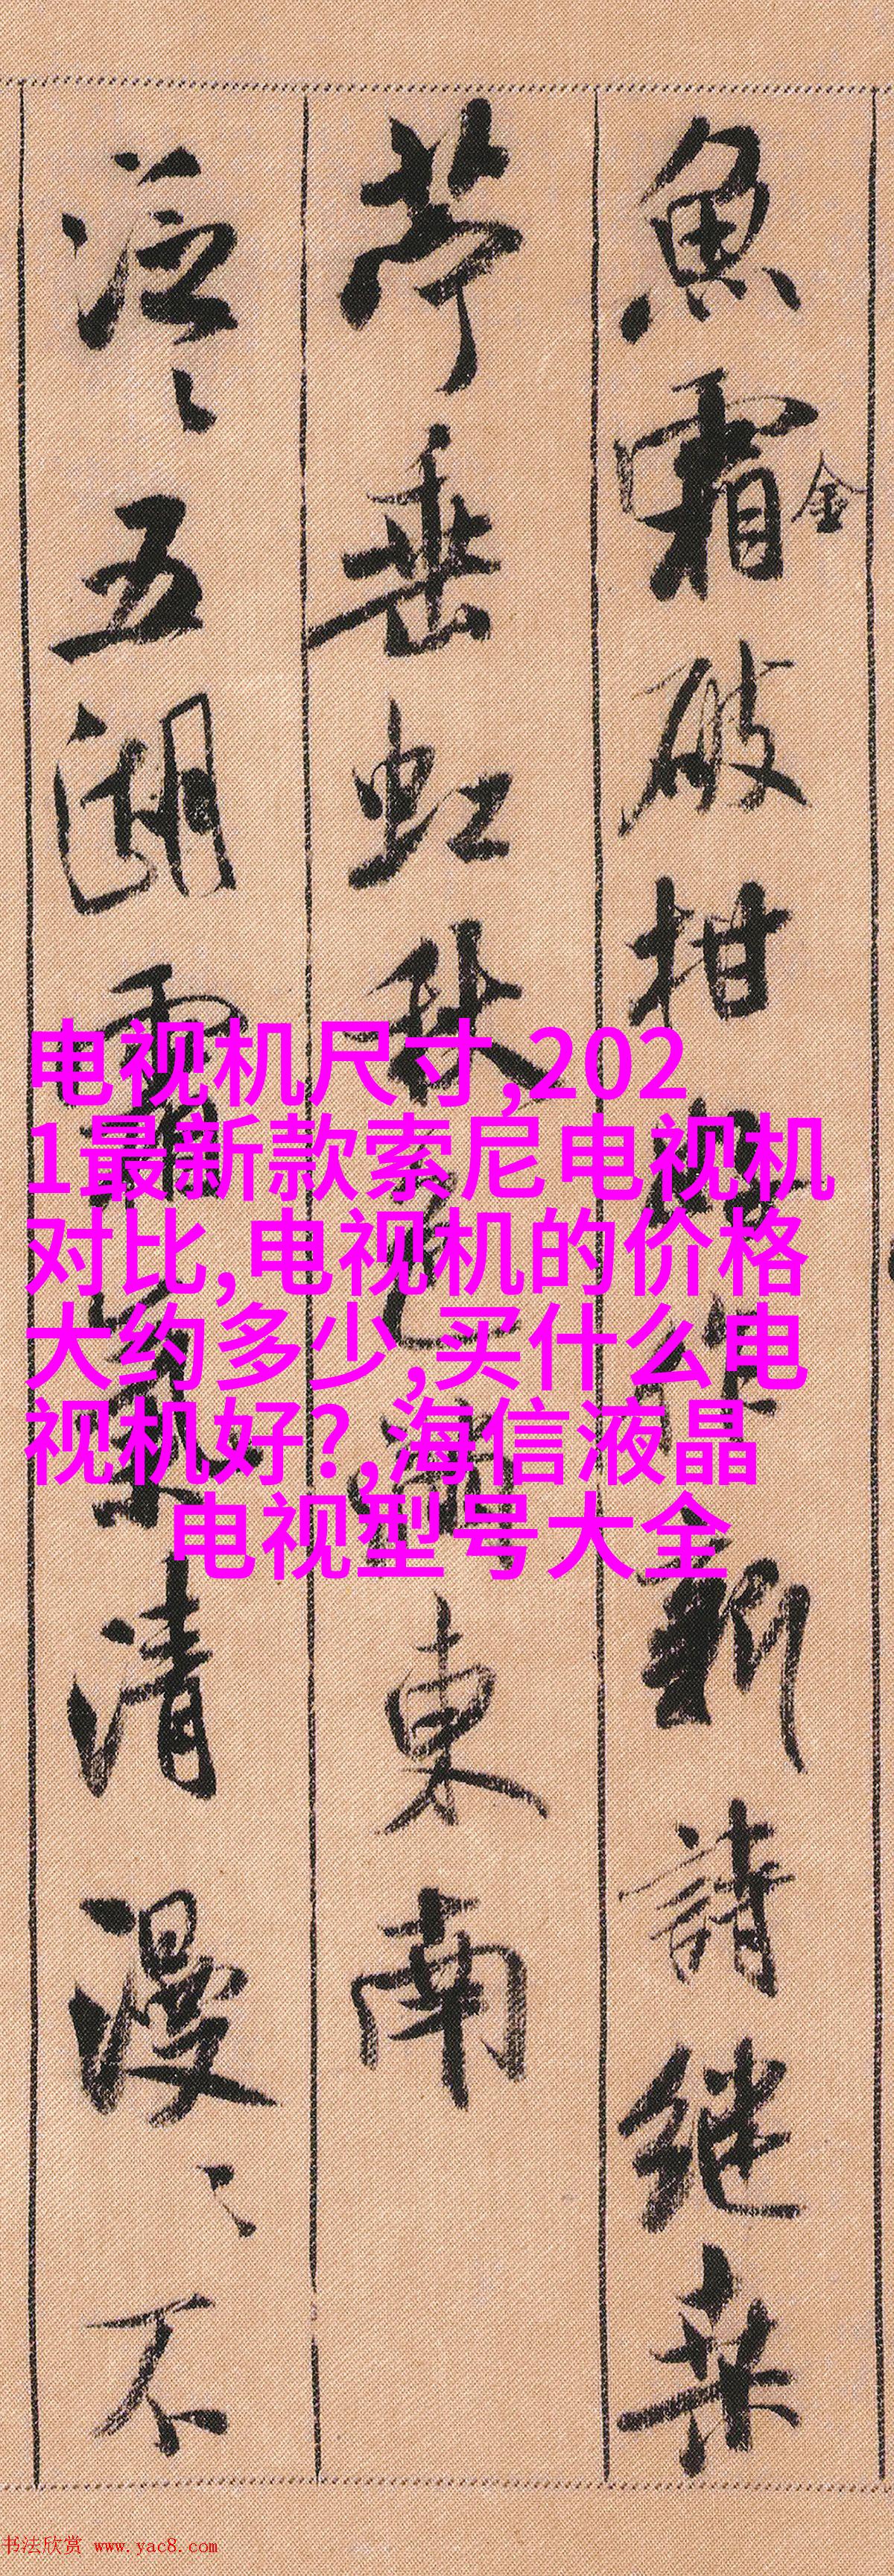 魚霜金破柑好作新詩継桒
苧垂虹秋色滿東南
泛〻五湖霜氣清漫〻不
电视机尺寸,202
1最新款索尼电视机
对比,电视机的价格
大约多少,买什么电
视机好?,海信液晶
电视型号大全
书法欣赏 www.yac8.com